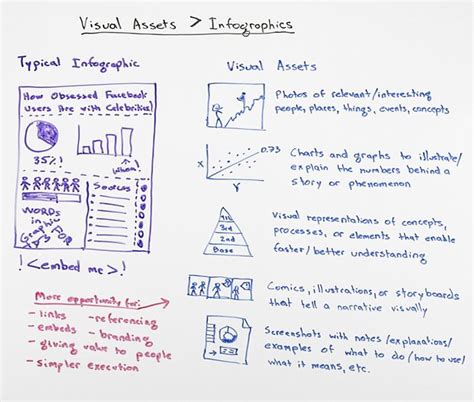 Visual Assets > Infographics
Typical Infographic
How Obsessed Facebook
Users Are with Celebrities!
35%!
Whoa!
WORDS
in
Graphic
FOR
Sources
! <embed me> !
More opportunity for:
- links - referencing
- embeds - branding
- giving value to people
- simpler execution
Visual Assets
Photos of relevant/interesting
people, places, things, events, concepts
X
0.73
Y
Charts and graphs to illustrate/
explain the numbers behind a
story or phenomenon
4th
3rd
2nd
Base
Visual representations of concepts,
processes, or elements that enable
faster/better understanding
Comics, illustrations, or storyboards
that tell a narrative visually
Screenshots with notes/explanations/
examples of what to do/how to use/
what it means, etc.